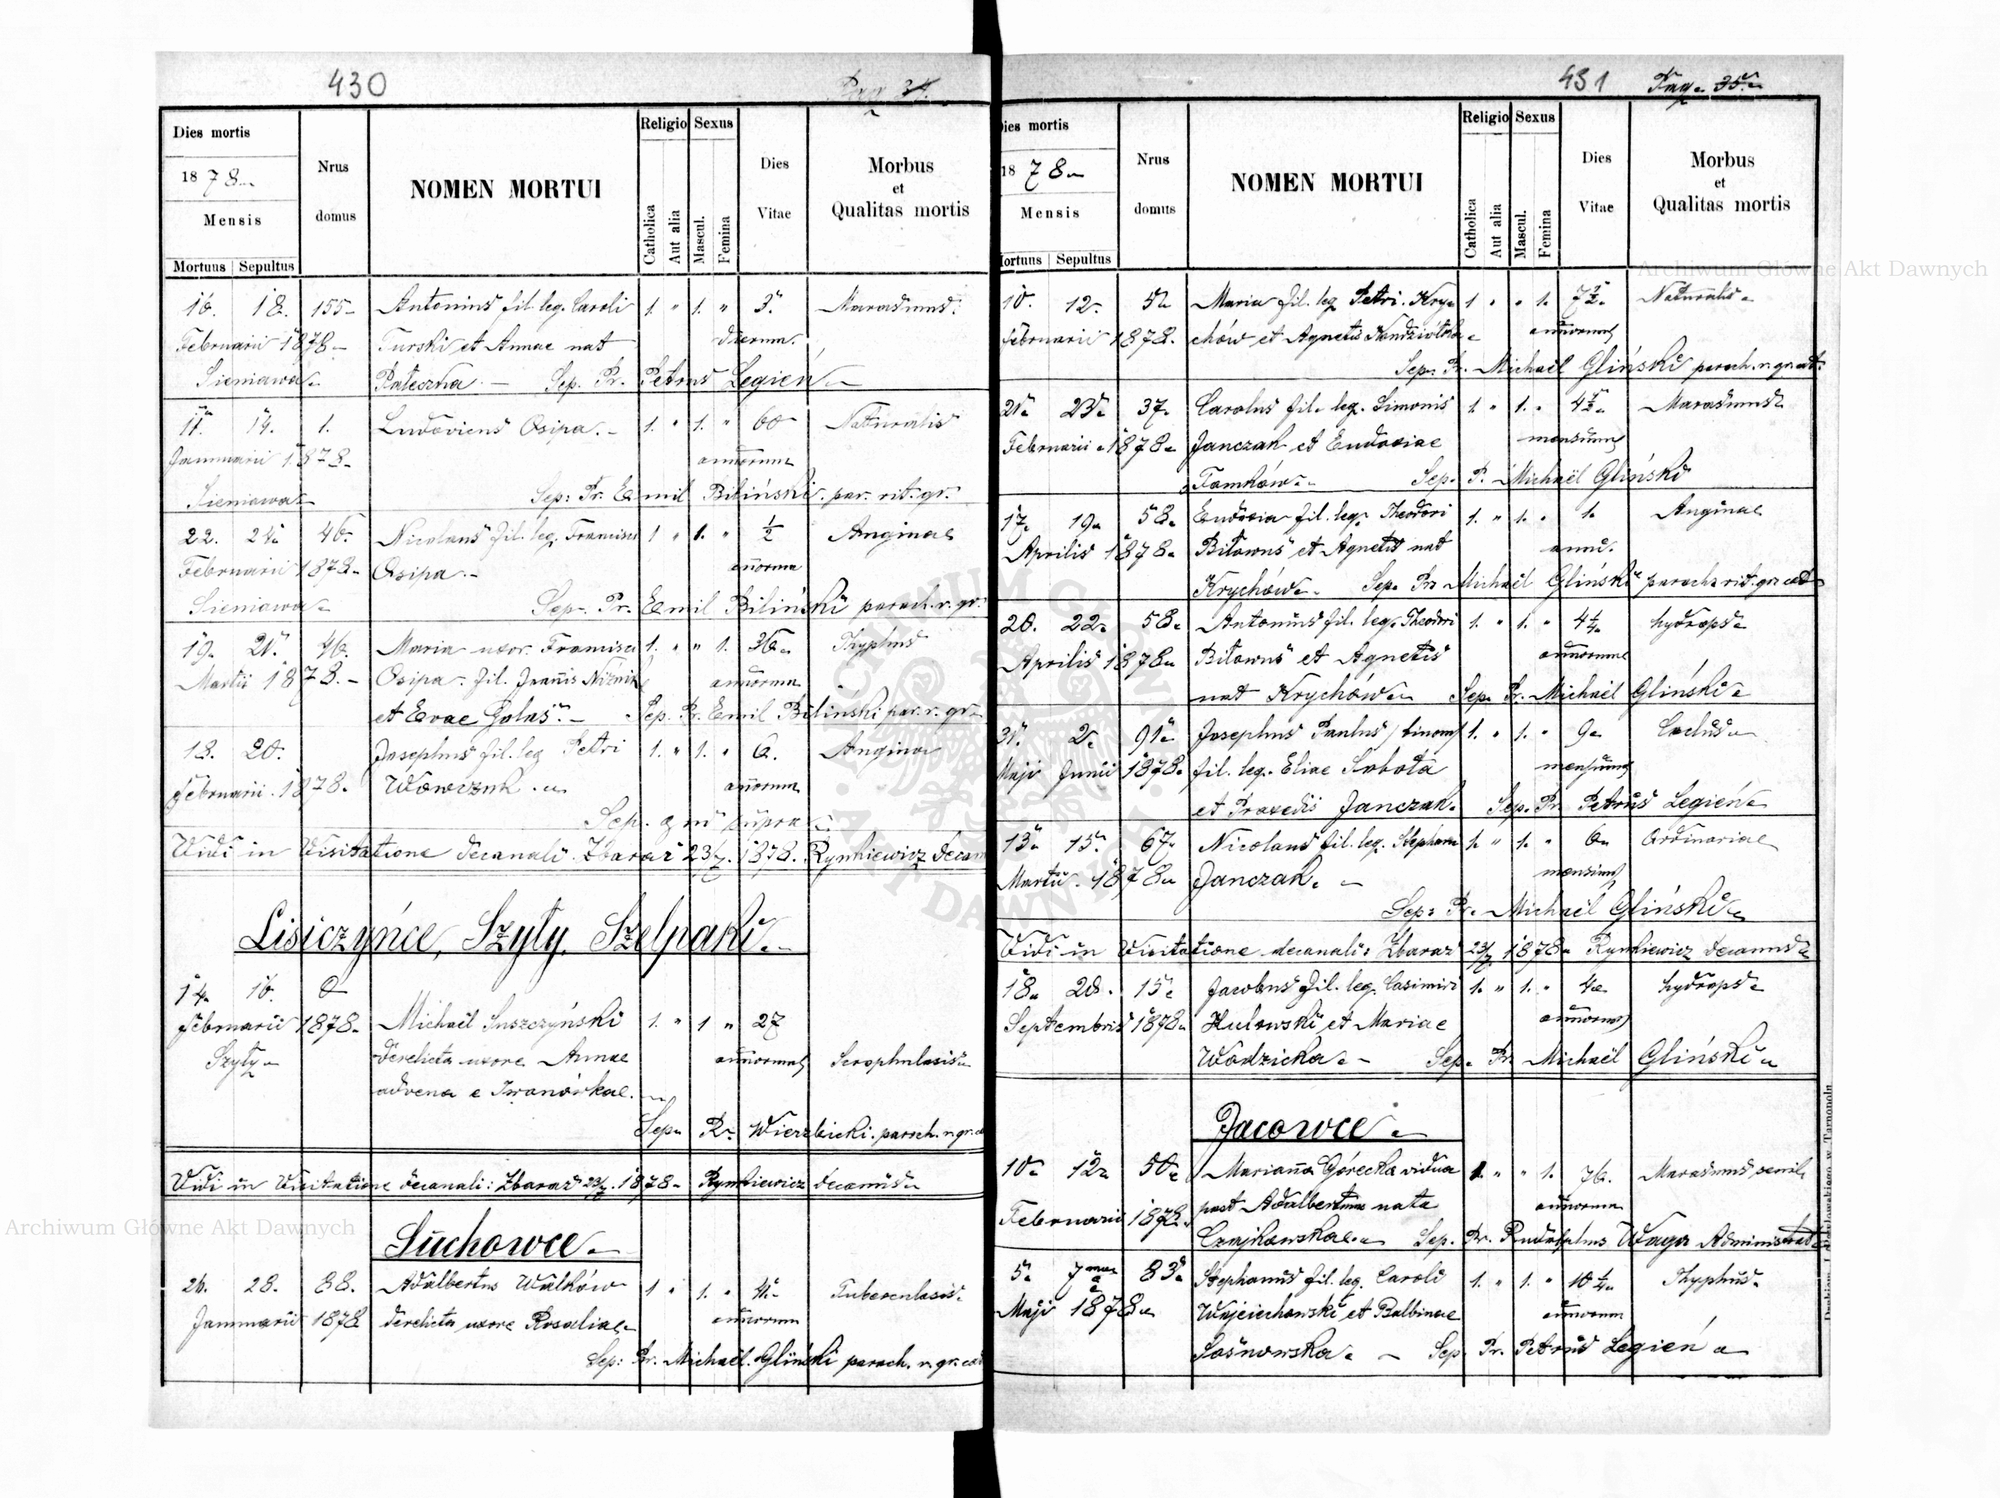 430
Pag. 34.
Dies mortis
1878
Mensis
Mortuus | Sepultus
Nrus domus
NOMEN MORTUI
Religio
Catholica
Aut alia
Sexus
Mascul.
Femina
Dies Vitae
Morbus et Qualitas mortis
16. 18. 155 Antonius fil. leg. Caroli 1. " 1. " 3. Marasmus.
Februarii 1878 Turski et Annae nat dierum.
Sieniawa Pateszka. — Sep. Pr. Petrus Legień
14. 1. Ludovicus Osipa. 1. " 1. " 60 Naturalis
Januarii 1878 annorum
Sieniawa Sep: Pr. Emil Biliński par. rit. gr.
22. 24. 46. Nicolaus fil. leg. Francisci 1 " 1. " ½ Anginae
Februarii 1878 Osipa. annorum
Sieniawa Sep. Pr. Emil Biliński paroch. r. gr.
19. 21. 46. Maria uxor Francisci 1. " " 1. 36 Thyphus
Martii 1878. Osipa. fil. Joannis Niżnik annorum
et Evae Gołas. Sep. Pr. Emil Biliński par. r. gr.
18. 20. Josephus fil. leg Petri 1. " 1. " 6. Angina
Februarii 1878. Wowczuk. annorum
Sep. qui supra
Vidi in Visitatione decanali Zbaraż 23/7. 1878. Rynkiewicz Decan
Lisiczyńce, Szyły, Szelpaki.
14. 16. 0
Februarii 1878. Michaël Suszczyński 1. " 1 " 27
Szyły derelicta uxore Annae annorum Scrophulosis
advena e Iwanówkae.
Sep. Pr. Wierzbicki. paroch. r. gr. c
Vidi in Visitatione decanali: Zbaraż 23/7. 1878. Rynkiewicz decanus
Suchowce
26. 28. 88. Adalbertus Wałków 1 " 1. " Tuberculosis.
Januarii 1878 derelicta uxore Rosaliae annorum
Sep: Pr. Michaël. Gliński paroch. r. gr. cat
431
Pag. 35.
Dies mortis
1878
Mensis
Mortuus | Sepultus
Nrus domus
NOMEN MORTUI
Religio
Catholica
Aut alia
Sexus
Mascul.
Femina
Dies Vitae
Morbus et Qualitas mortis
10. 12. 5 Maria fil. leg Petri. Kry- 1 " " 1. 7½ Naturalis
Februarii 1878. chów et Agnetis annorum
Sep. Pr. Michaël Gliński paroch. r. gr. cat.
21. 23. 37. Carolus fil. leg. Simonis 1. " 1. " 4½ Marasmus
Februarii 1878 Janczak et Eudoxiae mensium
Tomków. Sep. P. Michaël Gliński
17. 19. 58. Eudoxia fil. leg. Theodori 1. " 1. " 1. Anginae
Aprilis 1878 Biłowus et Agnetis nat anni.
Krychów. Sep. Pr. Michaël Gliński paroch. rit. gr. cat
20. 22. 58. Antonius fil. leg. Theodori 1. " 1. " 4¼ hydrops
Aprilis 1878 Biłowus et Agnetis annorum
nat Krychów Sep. Pr. Michaël Gliński
31. 2. 91. Josephus Paulus /binom/ 1. " 1. " 9 Coclus
Maji Junii 1878. fil. leg. Eliae Sobota mensium
et Praxedis Janczak. Sep. Pr. Petrus Legień
13. 15. 67 Nicolaus fil. leg. Stephani 1. " 1. " 6 Ordinariae
Martii 1878 Janczak. mensium
Sep: Pr. Michaël Gliński
Vidi in Visitatione decanali: Zbaraż 23/7 1878 Rynkiewicz Decanus
18. 20. 15. Jacobus fil. leg. Casimiri 1. " 1. " 4 hydrops
Septembris 1878 Hulowski et Mariae annorum
Wodzicka. Sep. Pr. Michaël Gliński
Jacowce
10. 12. 50. Marianna Górecka vidua 1. " " 1. 76. Marasmus senil
Februarii 1878 post Adalbertum nata annorum
Czajkowska Sep. Pr. Rudolphus Waga Administrat
5. 7 83. Stephanus fil. leg. Caroli 1. " 1. " 10¼ Thyphus.
Maji 1878 Wojciechowski et Balbinae annorum
Sosnowska. Sep. Pr. Petrus Legień
Archiwum Główne Akt Dawnych
Archiwum Główne Akt Dawnych
ARCHIWUM GŁÓWNE AKT DAWNYCH